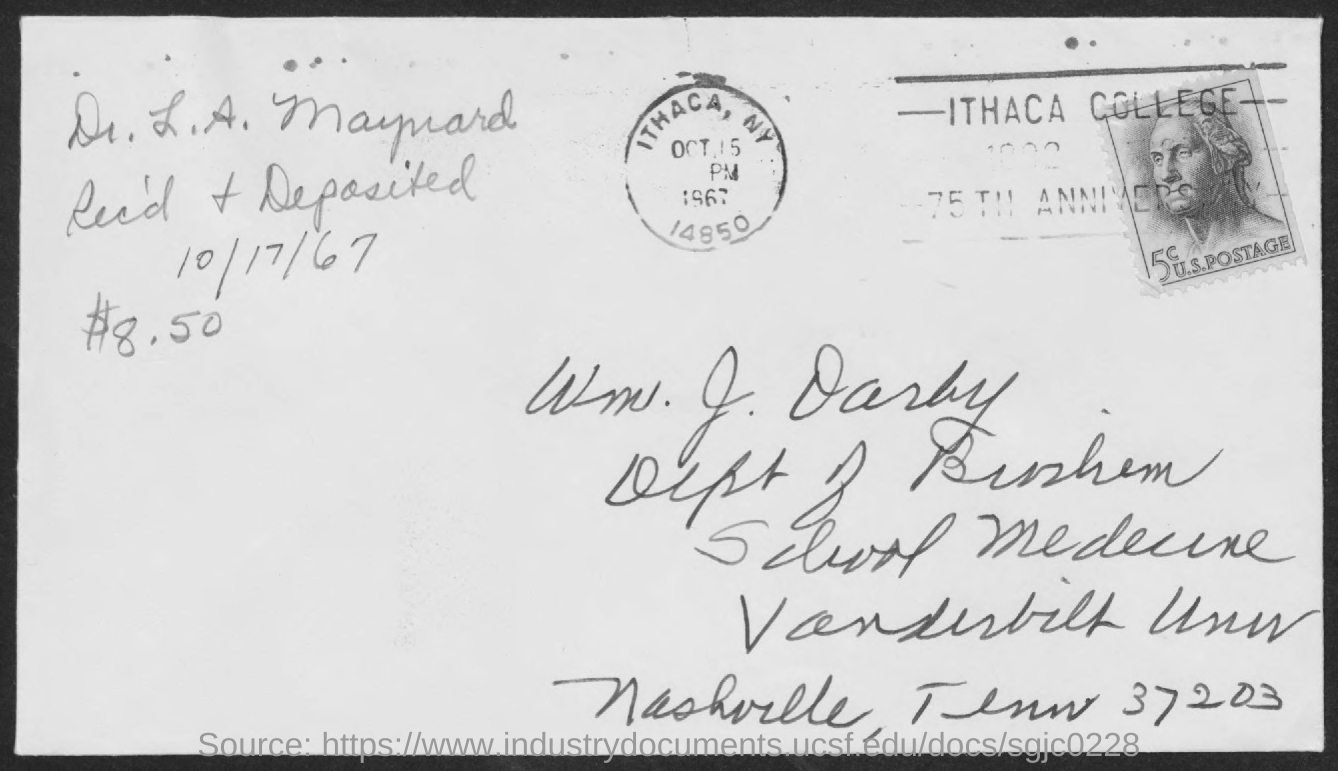 Dr. L.A. Maynard
Rec'd + Deposited
10/17/67
$8.50
ITHACA, NY
OCT 15
PM
1967
14850
ITHACA COLLEGE
1892
75TH ANNIVERSARY
5c
U.S.POSTAGE
Wm. J. Darby
Dept of Biochem
School Medicine
Vanderbilt Univ
Nashville, Tenn 37203
Source: https://www.industrydocuments.ucsf.edu/docs/sgjc0228